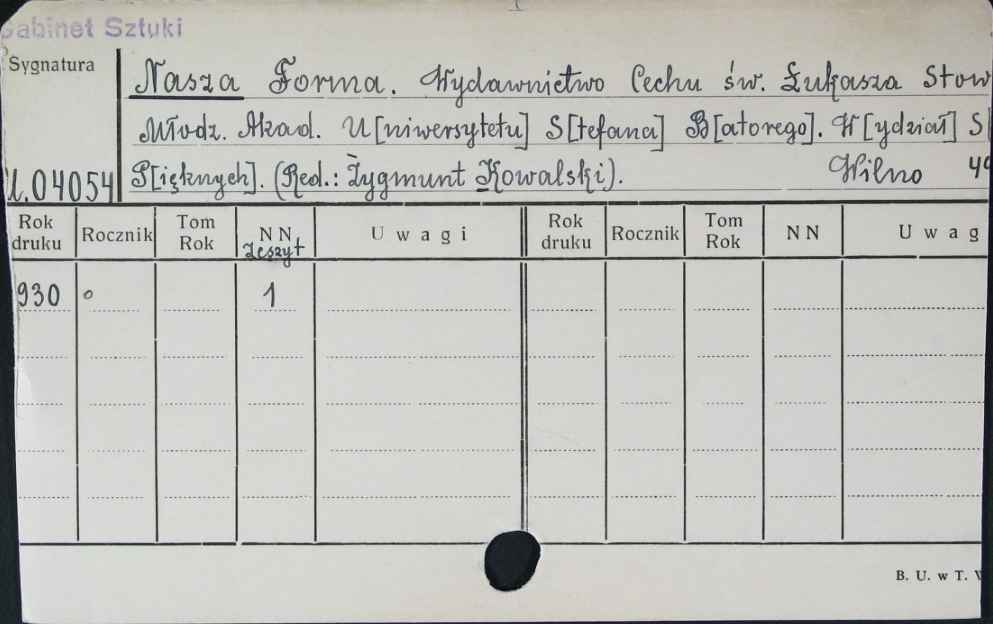 Gabinet Sztuki
Sygnatura
Nasza Forma. Wydawnictwo Cechu św. Łukasza Stow
Młodz. Akad. U[niwersytetu] S[tefana] B[atorego]. W[ydział] S
04054 P[ięknych]. (Red.: Zygmunt Kowalski). Wilno 4º
Rok druku Rocznik Tom Rok NN Zeszyt Uwagi Rok druku Rocznik Tom Rok NN Uwag
930 o 1
B. U. w T.